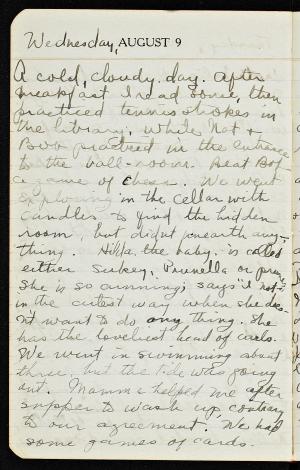 Wednesday, AUGUST 9
A cold, cloudy day. After
breakfast I read some, then
practiced tennis strokes in
the library, while Nat &
Bob practiced in the entrance
to the ball-room. Beat Bob
a game of chess. We went
exploring in the cellar with
candles to find the hidden
room, but didn't unearth any-
thing. Hilda, the baby, is called
either Sukey, Prunella or
She is so cunning; says "I not"
in the cutest way when she does-
n't want to do any thing. She
has the loveliest head of curls.
We went in swimming about
three, but the tide was going
out. Mamma helped me after
supper to wash up, contrary
to our agreement. We had
some games of cards.